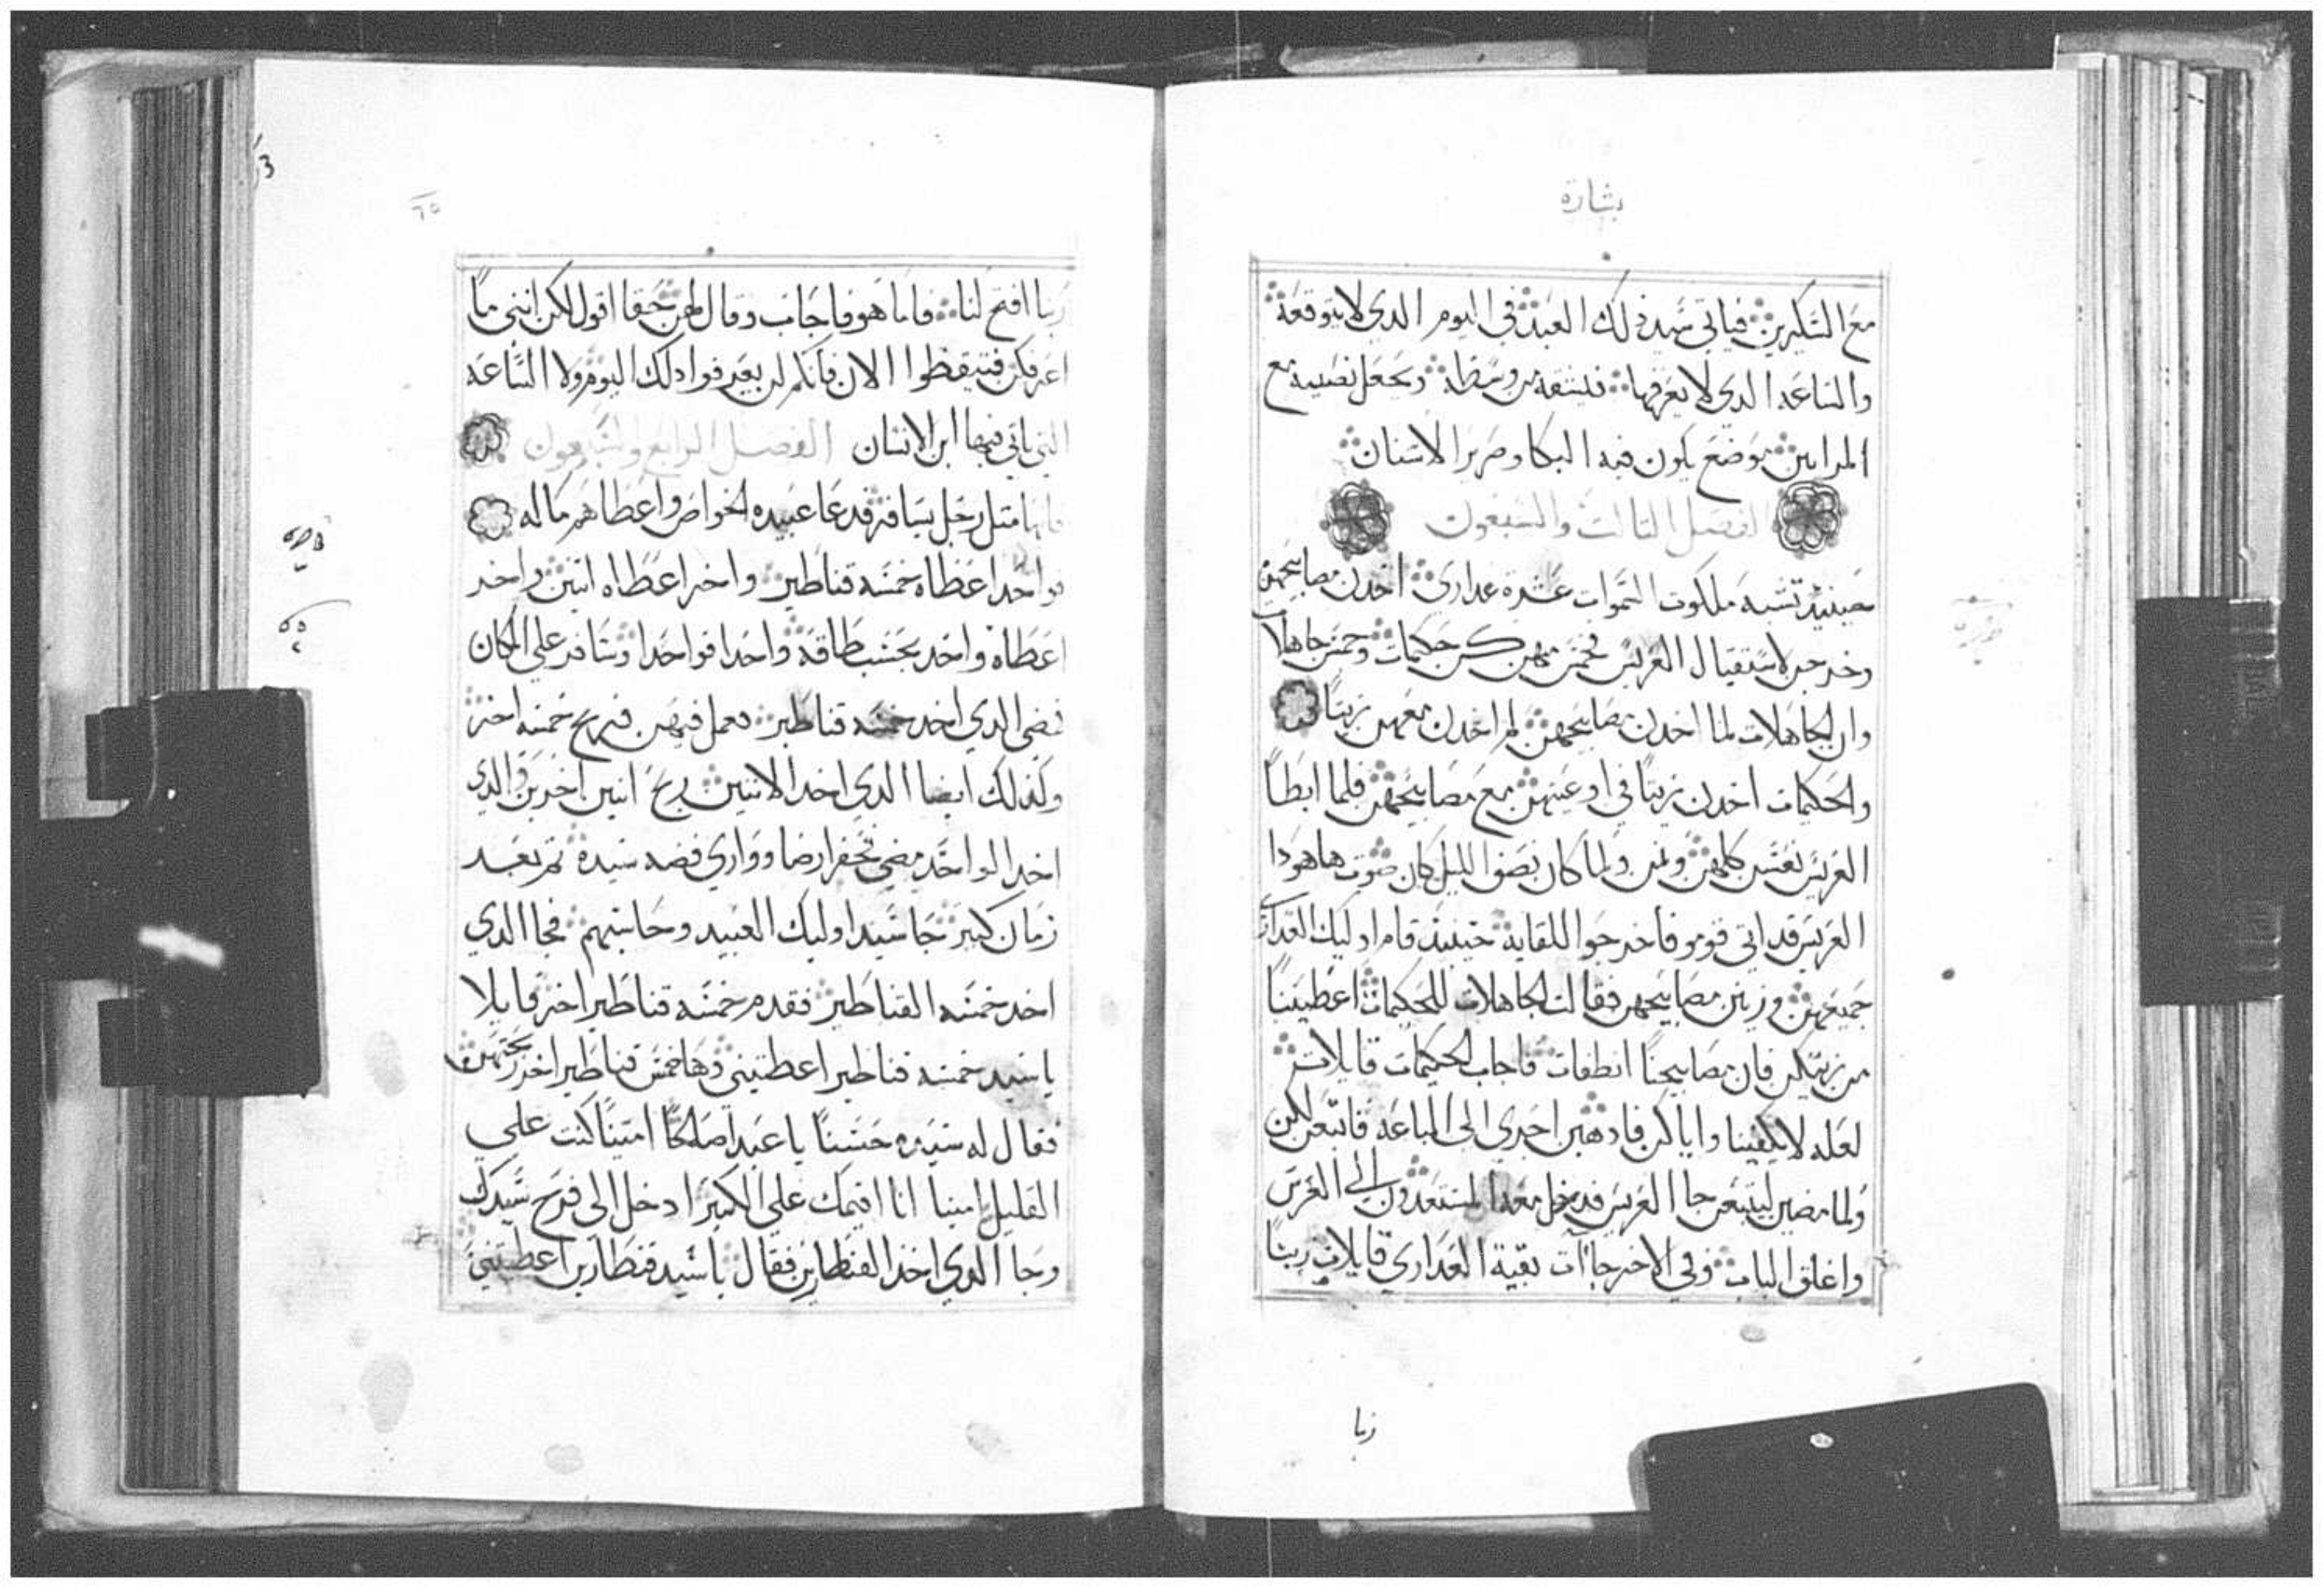 بشارة
مع السكيرين فياتي سيد ذلك العبد في اليوم الدي لا يتوقعة
والساعه الدي لا يعرفها فيشقه من وسطه ويجعل نصيبه مع
المرايين موضع يكون فيه البكا وصرير الاسنان
الفصل التالت والسبعون
حينيد تشبه ملكوت السموات عشرة عداري اخدن مصابيحهن
وخرجن لاستقبال العريس فخمس منهن كن حكيمات وخمس جاهلات
وان الجاهلات لما اخدن مصابيحهن لم ياخدن معهن زيتا
والحكيمات اخدن زيتا في اوعيتهن مع مصابيحهن فلما ابطا
العريس نعسن كلهن ونمن ولما كان نصف الليل كان صوت هاهودا
العريس قد اتي قومو فاخرجوا للقايه حينيد قام اوليك العداري
جميعهن وزين مصابيحهن فقالت الجاهلات للحكيمات اعطيننا
من زيتكن فان مصابيحنا انطفات فاجاب الحكيمات قايلات
لعله لا يكفينا واياكن فادهبن احري الي الباعه فابتعن لكن
ولما مضين ليبتعن جا العريس فدخل معه المستعدون الي العرس
واغلق الباب وفي الاخر جاات بقية العداري قايلات ربنا
ربا
٦٥
ربا افتح لنا فاما هو فاجاب وقال لهن حقا اقول لكن انني ما
اعرفكن فتيقظوا الان فانكم لن تعرفوا دلك اليوم ولا الساعه
التي ياتي فيها ابن الانسان الفصل الرابع والسبعون
متل رجل يسافر فدعا عبيده الخواص واعطاهم ماله
فواحدا عطاه خمسه قناطير واخر اعطاه اتنين واخر
اعطاه واخد بحسب طاقة واحدا فواحدا وسافر علي المكان
فمضي الدي اخد خمسه قناطير فعمل فيهن فربح خمسه اخر
وكدلك ايضا الدي اخد الاتنين ربح اتنين اخرين والدي
اخد الواحد مضي فحفر ارضا وواري فضه سيده تم بعد
زمان كبير جا سيد اوليك العبيد وحاسبهم فجا الدي
اخد خمسه القناطير فقدم خمسه قناطير اخر قايلا
يا سيد خمسه قناطير اعطتيني وها خمس قناطير اخر ربحتهن
فقال له سيده حسنا يا عبدا صالحا امينا كنت علي
القليل امينا انا اقيمك علي الكتير ادخل الي فرح سيدك
وجا الدي اخد القنطارين فقال يا سيد قنطارين اعطتيني